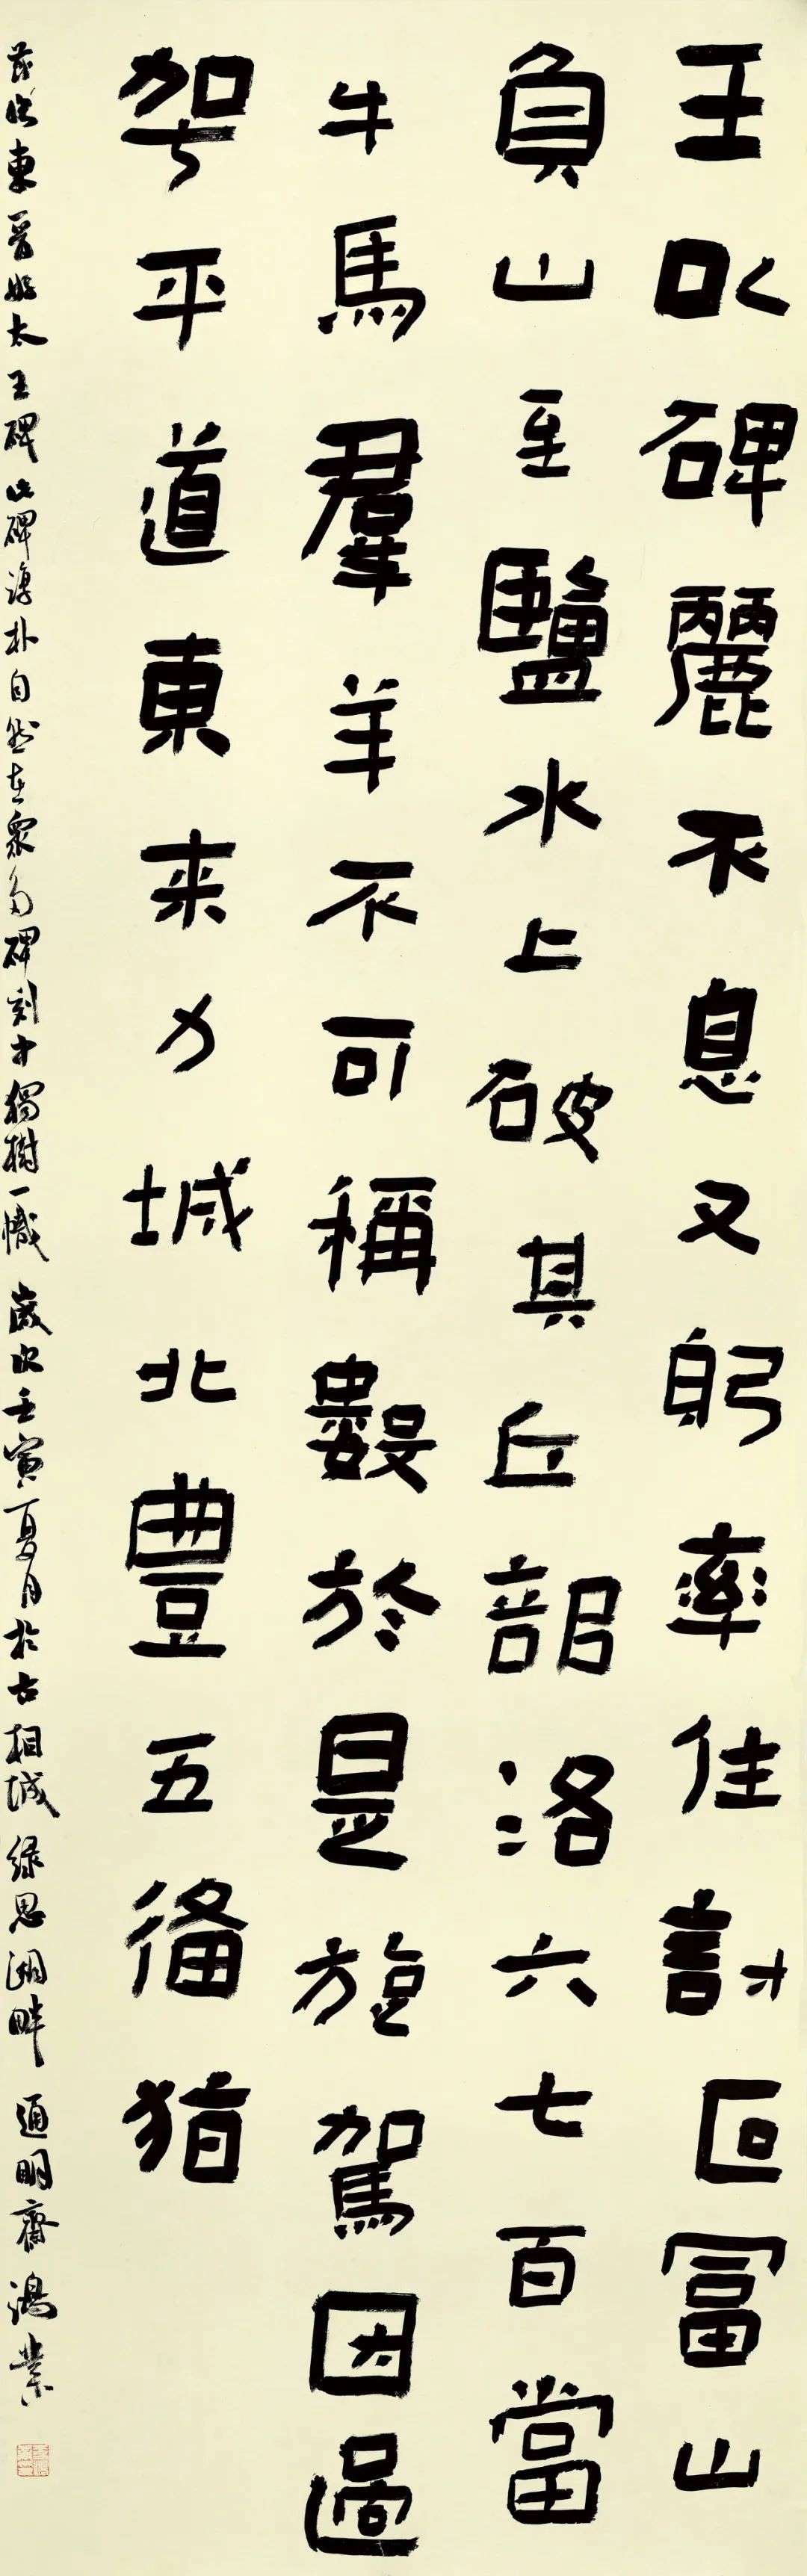 王以碑麗不息又躬率住討叵富山
負山至鹽水上破其丘部洛六七百當
牛馬羣羊不可稱數於是旋駕因過
駕平道東来力城北豊五備猶
节临東晋好太王碑此碑淳朴自然在眾多碑刻中獨樹一幟歲次壬寅夏月於古相城绿思湖畔通明齋鴻業